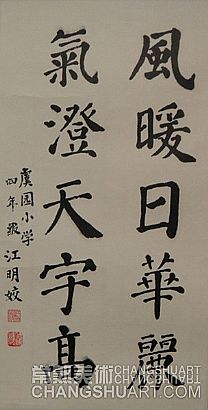 風暖日華麗
氣澄天宇高
虞园小学
四年級 江明姣
常熟美術 CHANGSHUART.COM
CHANGSHUART.COM